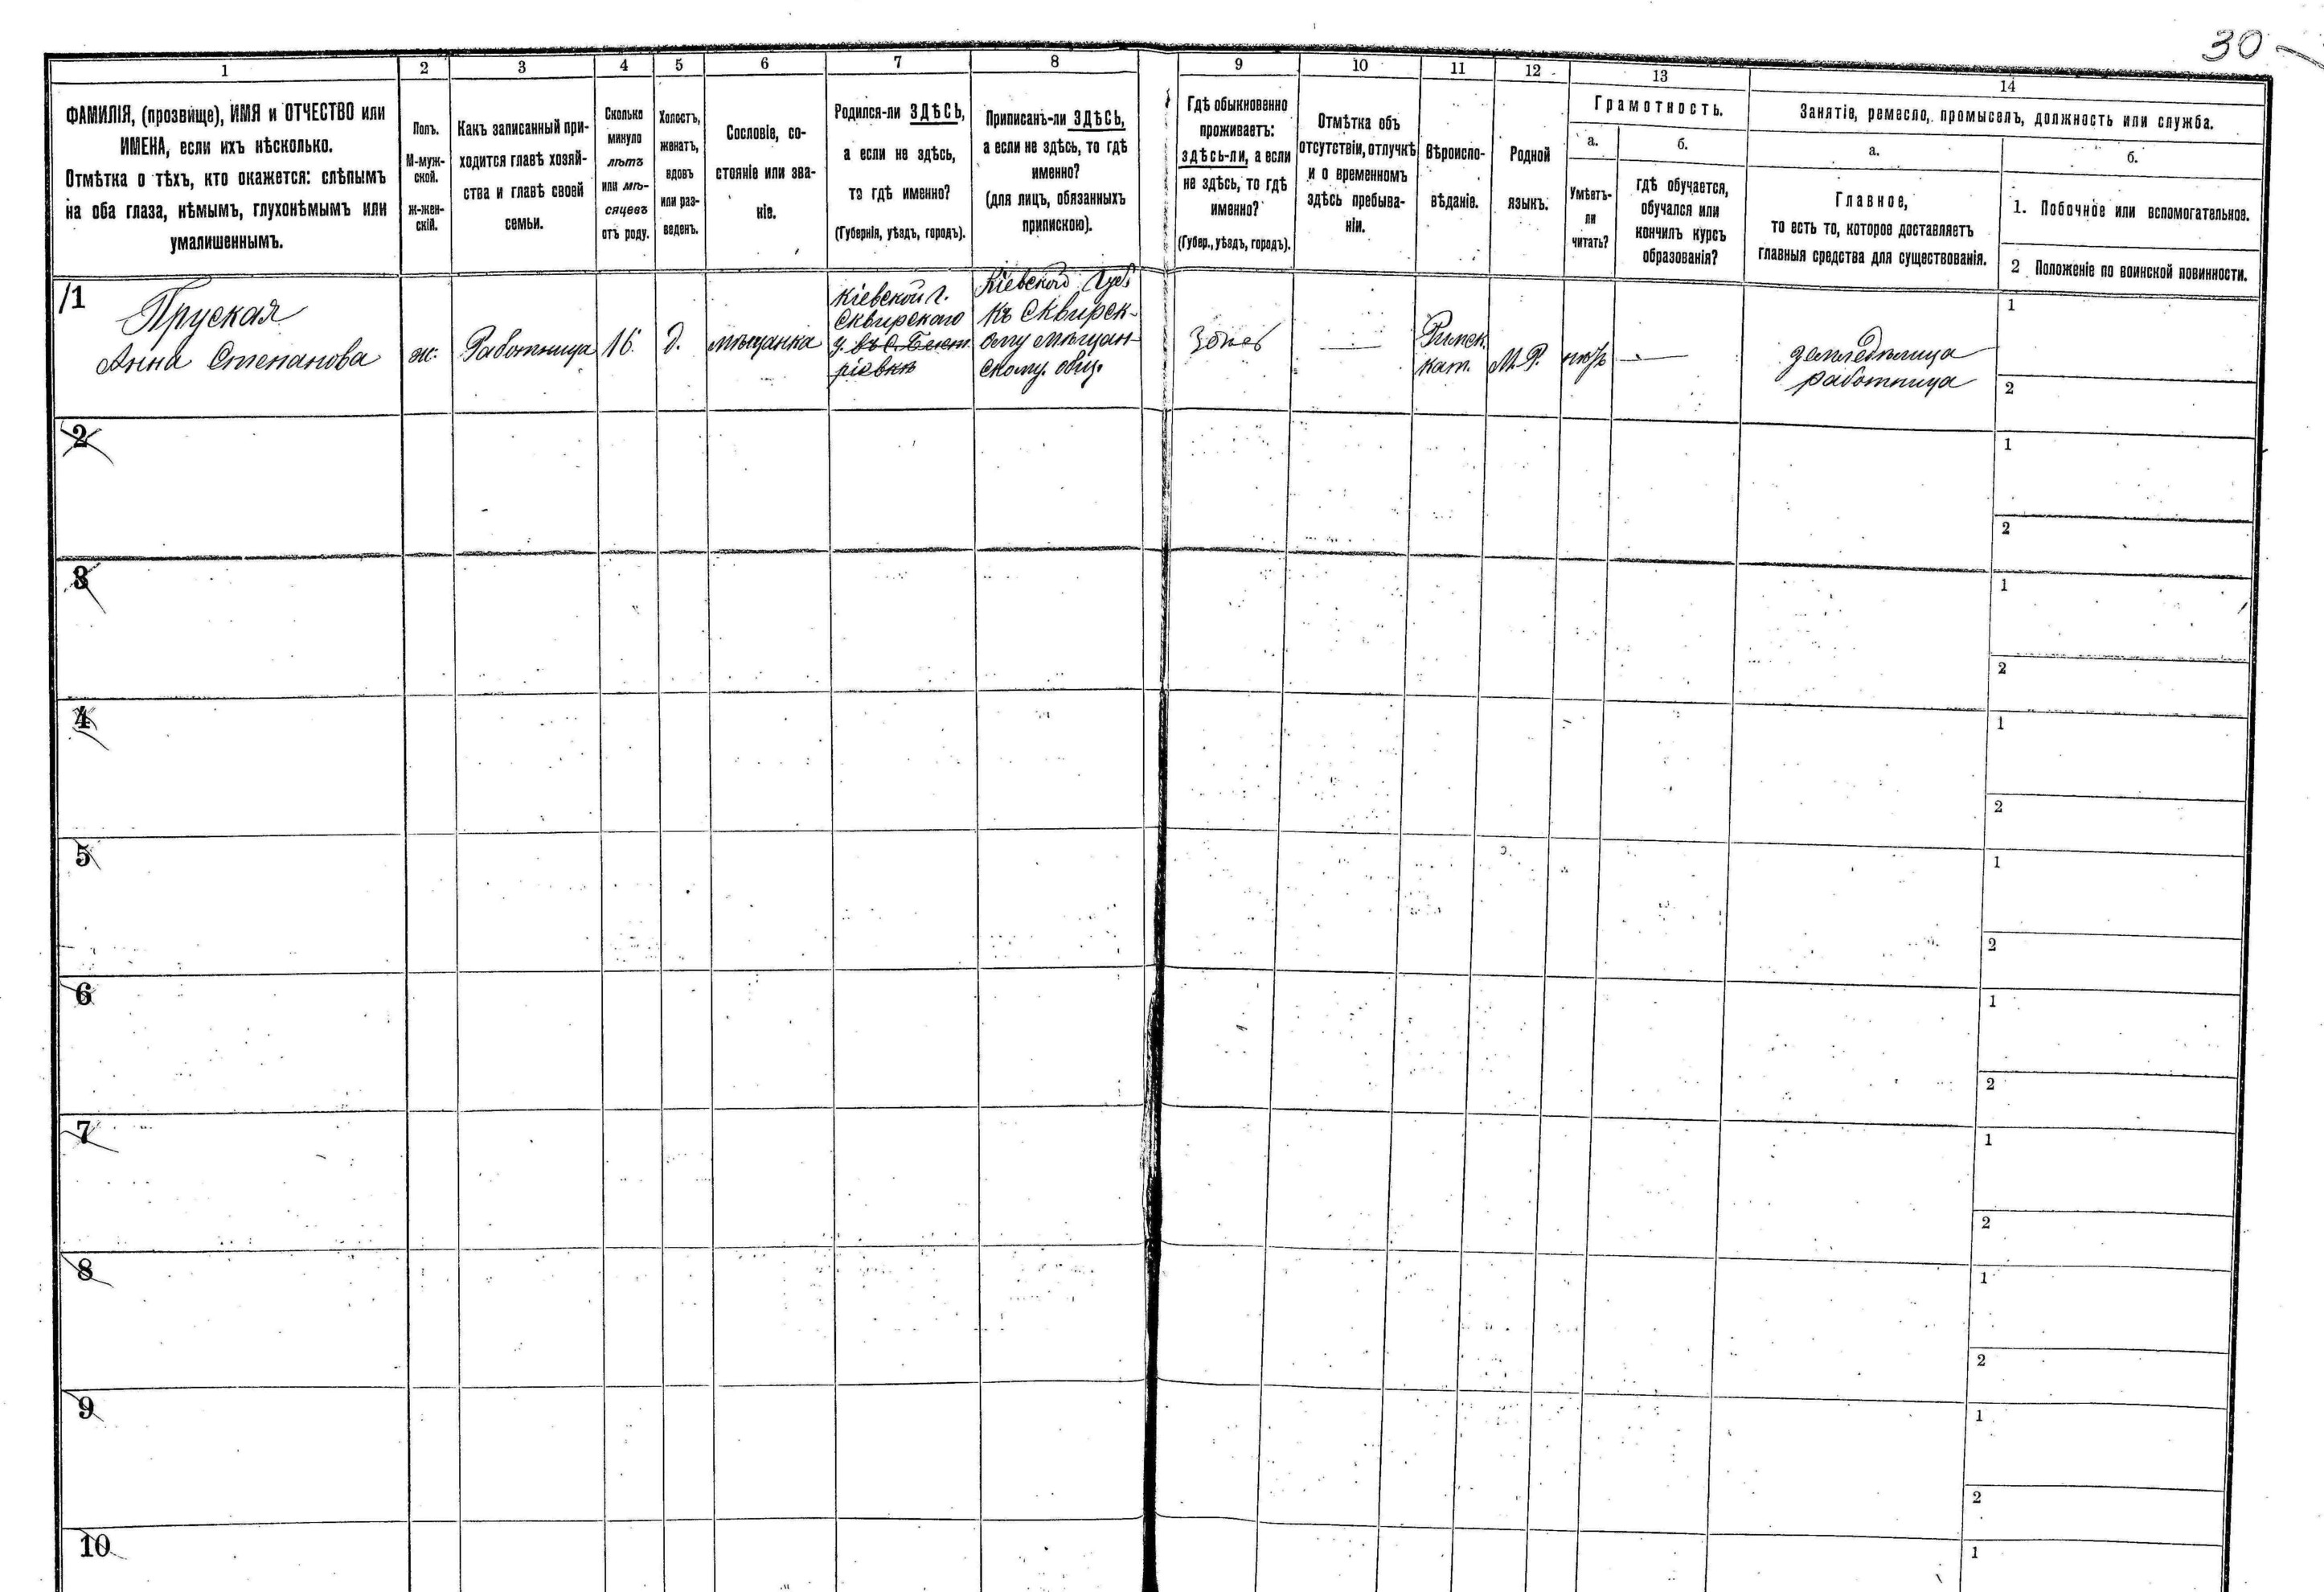 30
1
2
3
4
5
6
7
8
9
10
11
12
13
14
ФАМИЛІЯ, (прозвище), ИМЯ и ОТЧЕСТВО или
ИМЕНА, если ихъ нѣсколько.
Отмѣтка о тѣхъ, кто окажется: слѣпымъ
на оба глаза, нѣмымъ, глухонѣмымъ или
умалишеннымъ.
Полъ.
М-муж-
ской.
Ж-жен-
скій.
Какъ записанный при-
ходится главѣ хозяй-
ства и главѣ своей
семьи.
Сколько
минуло
лѣтъ
или мѣ-
сяцевъ
отъ роду.
Холостъ,
женатъ,
вдовъ
или раз-
веденъ.
Сословіе, со-
стояніе или зва-
ніе.
Родился-ли ЗДѢСЬ,
а если не здѣсь,
то гдѣ именно?
(Губернія, уѣздъ, городъ).
Приписанъ-ли ЗДѢСЬ,
а если не здѣсь, то гдѣ
именно?
(для лицъ, обязанныхъ
припискою).
Гдѣ обыкновенно
проживаетъ:
здѣсь-ли, а если
не здѣсь, то гдѣ
именно?
(Губер., уѣздъ, городъ).
Отмѣтка объ
отсутствіи, отлучкѣ
и о временномъ
здѣсь пребыва-
ніи.
Вѣроиспо-
вѣданіе.
Родной
языкъ.
Грамотность.
а.
Умѣетъ-
ли
читать?
б.
гдѣ обучается,
обучался или
кончилъ курсъ
образованія?
Занятіе, ремесло, промыселъ, должность или служба.
а.
Главное,
то есть то, которое доставляетъ
главныя средства для существованія.
б.
1. Побочное или вспомогательное.
2 Положеніе по воинской повинности.
1
Пруская
Анна Степанова
ж.
Работница
16.
д.
мѣщанка
Кіевской г.
Сквирскаго
у. въ с.
Кіевской Губ
Къ Сквирск-
ому мѣщан-
скому. общ.
Здѣсь
—
Римск.
кат.
М. Р.
нѣтъ
—
земледѣлица
работница
1
2
2
1
2
3
1
2
4
1
2
5
1
2
6
1
2
7
1
2
8
1
2
9
1
2
10
1